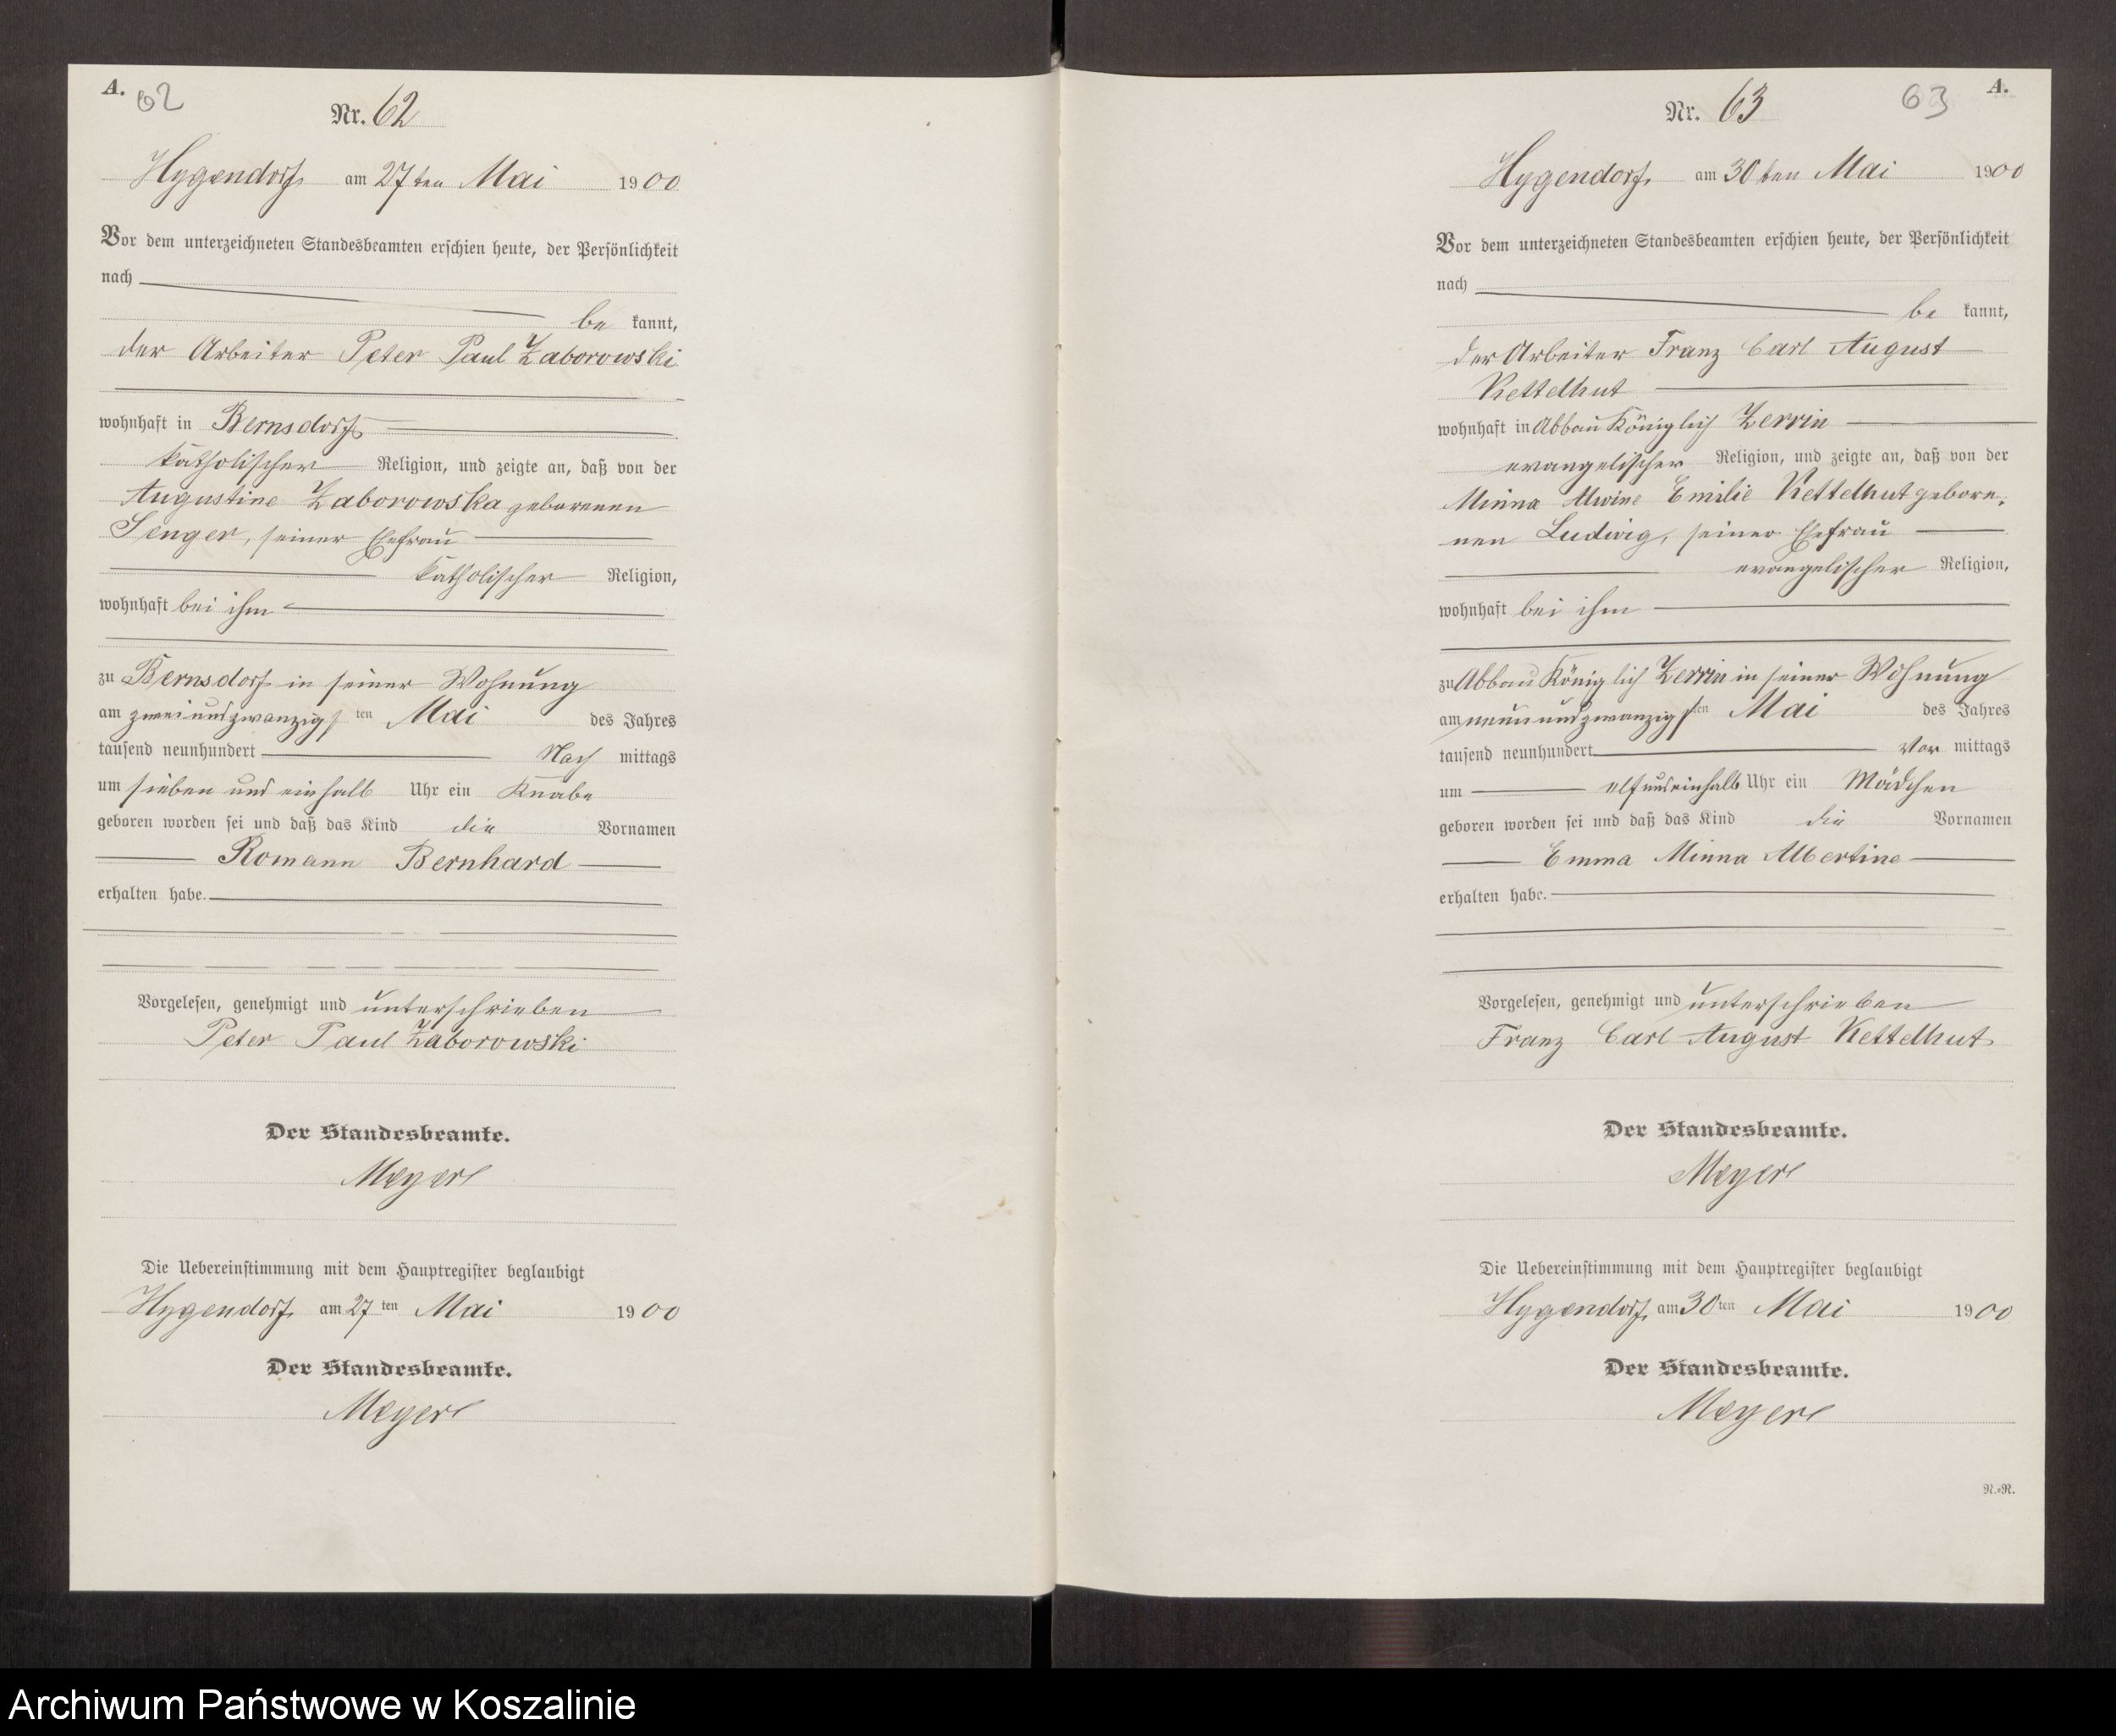 A.
62
Nr. 62
Hygendorf am 27ten Mai 1900
Vor dem unterzeichneten Standesbeamten erschien heute, der Persönlichkeit
nach
be kannt,
der Arbeiter Peter Paul Zaborowski
wohnhaft in Bernsdorf
katholischer Religion, und zeigte an, daß von der
Augustine Zaborowska geborenen
Senger, seiner Ehefrau
katholischer Religion,
wohnhaft bei ihm
zu Bernsdorf in seiner Wohnung
am zweiundzwanzigsten Mai des Jahres
tausend neunhundert Nach mittags
um sieben und einhalb Uhr ein Knabe
geboren worden sei und daß das Kind die Vornamen
Romann Bernhard
erhalten habe.
Vorgelesen, genehmigt und unterschrieben
Peter Paul Zaborowski
Der Standesbeamte.
Meyer
Die Uebereinstimmung mit dem Hauptregister beglaubigt
Hygendorf am 27 ten Mai 1900
Der Standesbeamte.
Meyer
A.
63
Nr. 63
Hygendorf, am 30ten Mai 1900
Vor dem unterzeichneten Standesbeamten erschien heute, der Persönlichkeit
nach
be kannt,
der Arbeiter Franz Carl August
Kettelhut
wohnhaft in Abbau Königlich Zerrin
evangelischer Religion, und zeigte an, daß von der
Minna Alwine Emilie Kettelhut gebore-
nen Ludwig, seiner Ehefrau
evangelischer Religion,
wohnhaft bei ihm
zu Abbau Königlich Zerrin in seiner Wohnung
am neunundzwanzigsten Mai des Jahres
tausend neunhundert Vor mittags
um elfundeinhalb Uhr ein Mädchen
geboren worden sei und daß das Kind die Vornamen
Emma Minna Albertine
erhalten habe.
Vorgelesen, genehmigt und unterschrieben
Franz Carl August Kettelhut
Der Standesbeamte.
Meyer
Die Uebereinstimmung mit dem Hauptregister beglaubigt
Hygendorf, am 30 ten Mai 1900
Der Standesbeamte.
Meyer
N.=R.
Archiwum Państwowe w Koszalinie